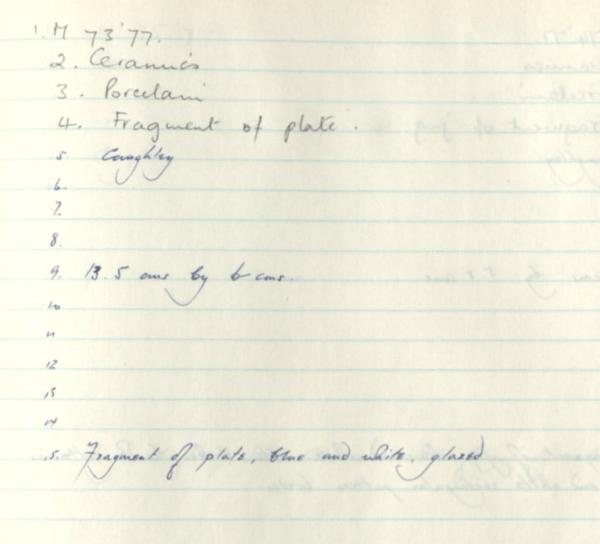 1. M 73'77.
2. Ceramics
3. Porcelain
4. Fragment of plate.
5 Caughley
6.
7.
8.
9. 13.5 cms by 6 cms.
10
11
12
13
14
15. Fragment of plate, blue and white, glazed